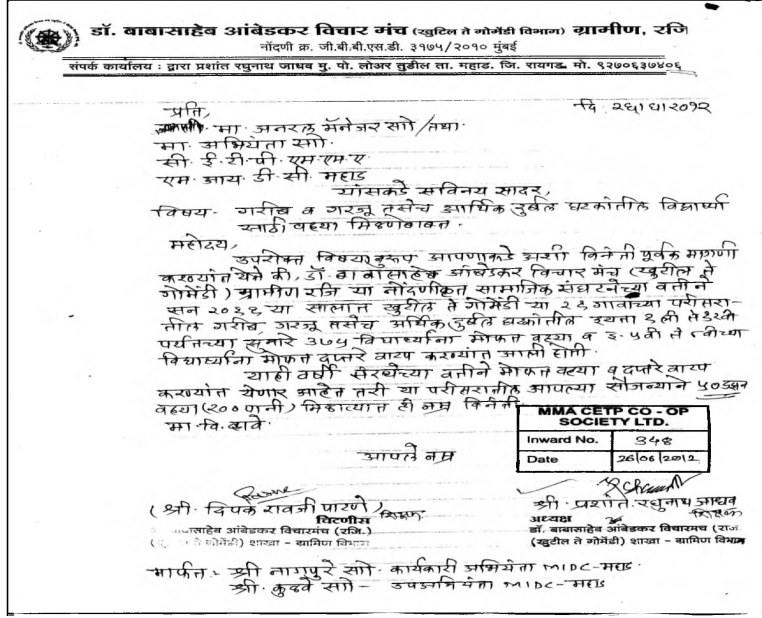 डॉ. बाबासाहेब आंबेडकर विचार मंच (खुटिल ते गोमेंडी विभाग) ग्रामीण, रजि
नोंदणी क्र. जी.बी.बी.एस.डी. ३१७५/२०१० मुंबई
संपर्क कार्यालय : द्वारा प्रशांत रघुनाथ जाधव मु. पो. लोअर तुडील ता. महाड. जि. रायगड. मो. ९२७०६३७४०६
प्रति,
मा. जनरल मॅनेजर सो/तथा
मा. अभियंता सो.
सी. ई.टी.पी. एम.एम.ए
एम. आय. डी. सी. महाड
यांसकडे सविनय सादर,
विषय- गरीब व गरजू तसेच आर्थिक दुर्बल घटकांतील विद्यार्थ्यां
साठी वह्या मिळणेबाबत.
महोदय,
उपरोक्त विषयानुरूप आपणाकडे अशी विनंती पूर्वक मागणी
करण्यांत येते की, डॉ. बाबासाहेब आंबेडकर विचार मंच (खुटील ते
गोमेंडी) ग्रामीण रजि या नोंदणीकृत सामाजिक संघटनेच्या वतीने
सन २०११ या सालात खुटील ते गोमेंडी या २६ गावांच्या परीसरा-
तील गरीब, गरजू तसेच आर्थिक दुर्बल घटकांतील इयत्ता १ली ते
पर्यंतच्या सुमारे ३७५ विद्यार्थ्यांना मोफत वह्या व इ. ५वी ते ८वीच्या
विद्यार्थ्यांना मोफत दप्तरे वाटप करण्यांत आली होती.
याही वर्षी संस्थेच्या वतीने मोफत वह्या व दप्तरे वाटप
करण्यांत येणार आहेत तरी या परीसरातील आपल्या सौजन्याने ५० डझन
वह्या (२०० पानी) मिळाव्यात ही नम्र विनंती.
मा. वि. व्हावे.
MMA CETP CO - OP
SOCIETY LTD.
Inward No. 348
Date 26/06/2012
आपले नम्र
(श्री. दिपक रावजी पारणे)
चिटणीस
बाबासाहेब आंबेडकर विचारमंच (रजि.)
ते गोमेंडी) शाखा - ग्रामिण विभाग
श्री. प्रशांत रघुनाथ जाधव
अध्यक्ष
डॉ. बाबासाहेब आंबेडकर विचारमंच (राज.
(खुटील ते गोमेंडी) शाखा - ग्रामिण विभाग
मार्फत :- श्री नागपुरे सो. कार्यकारी अभियंता MIDC-महाड
श्री. कुढवे सो - उपअभियंता MIDC-महाड